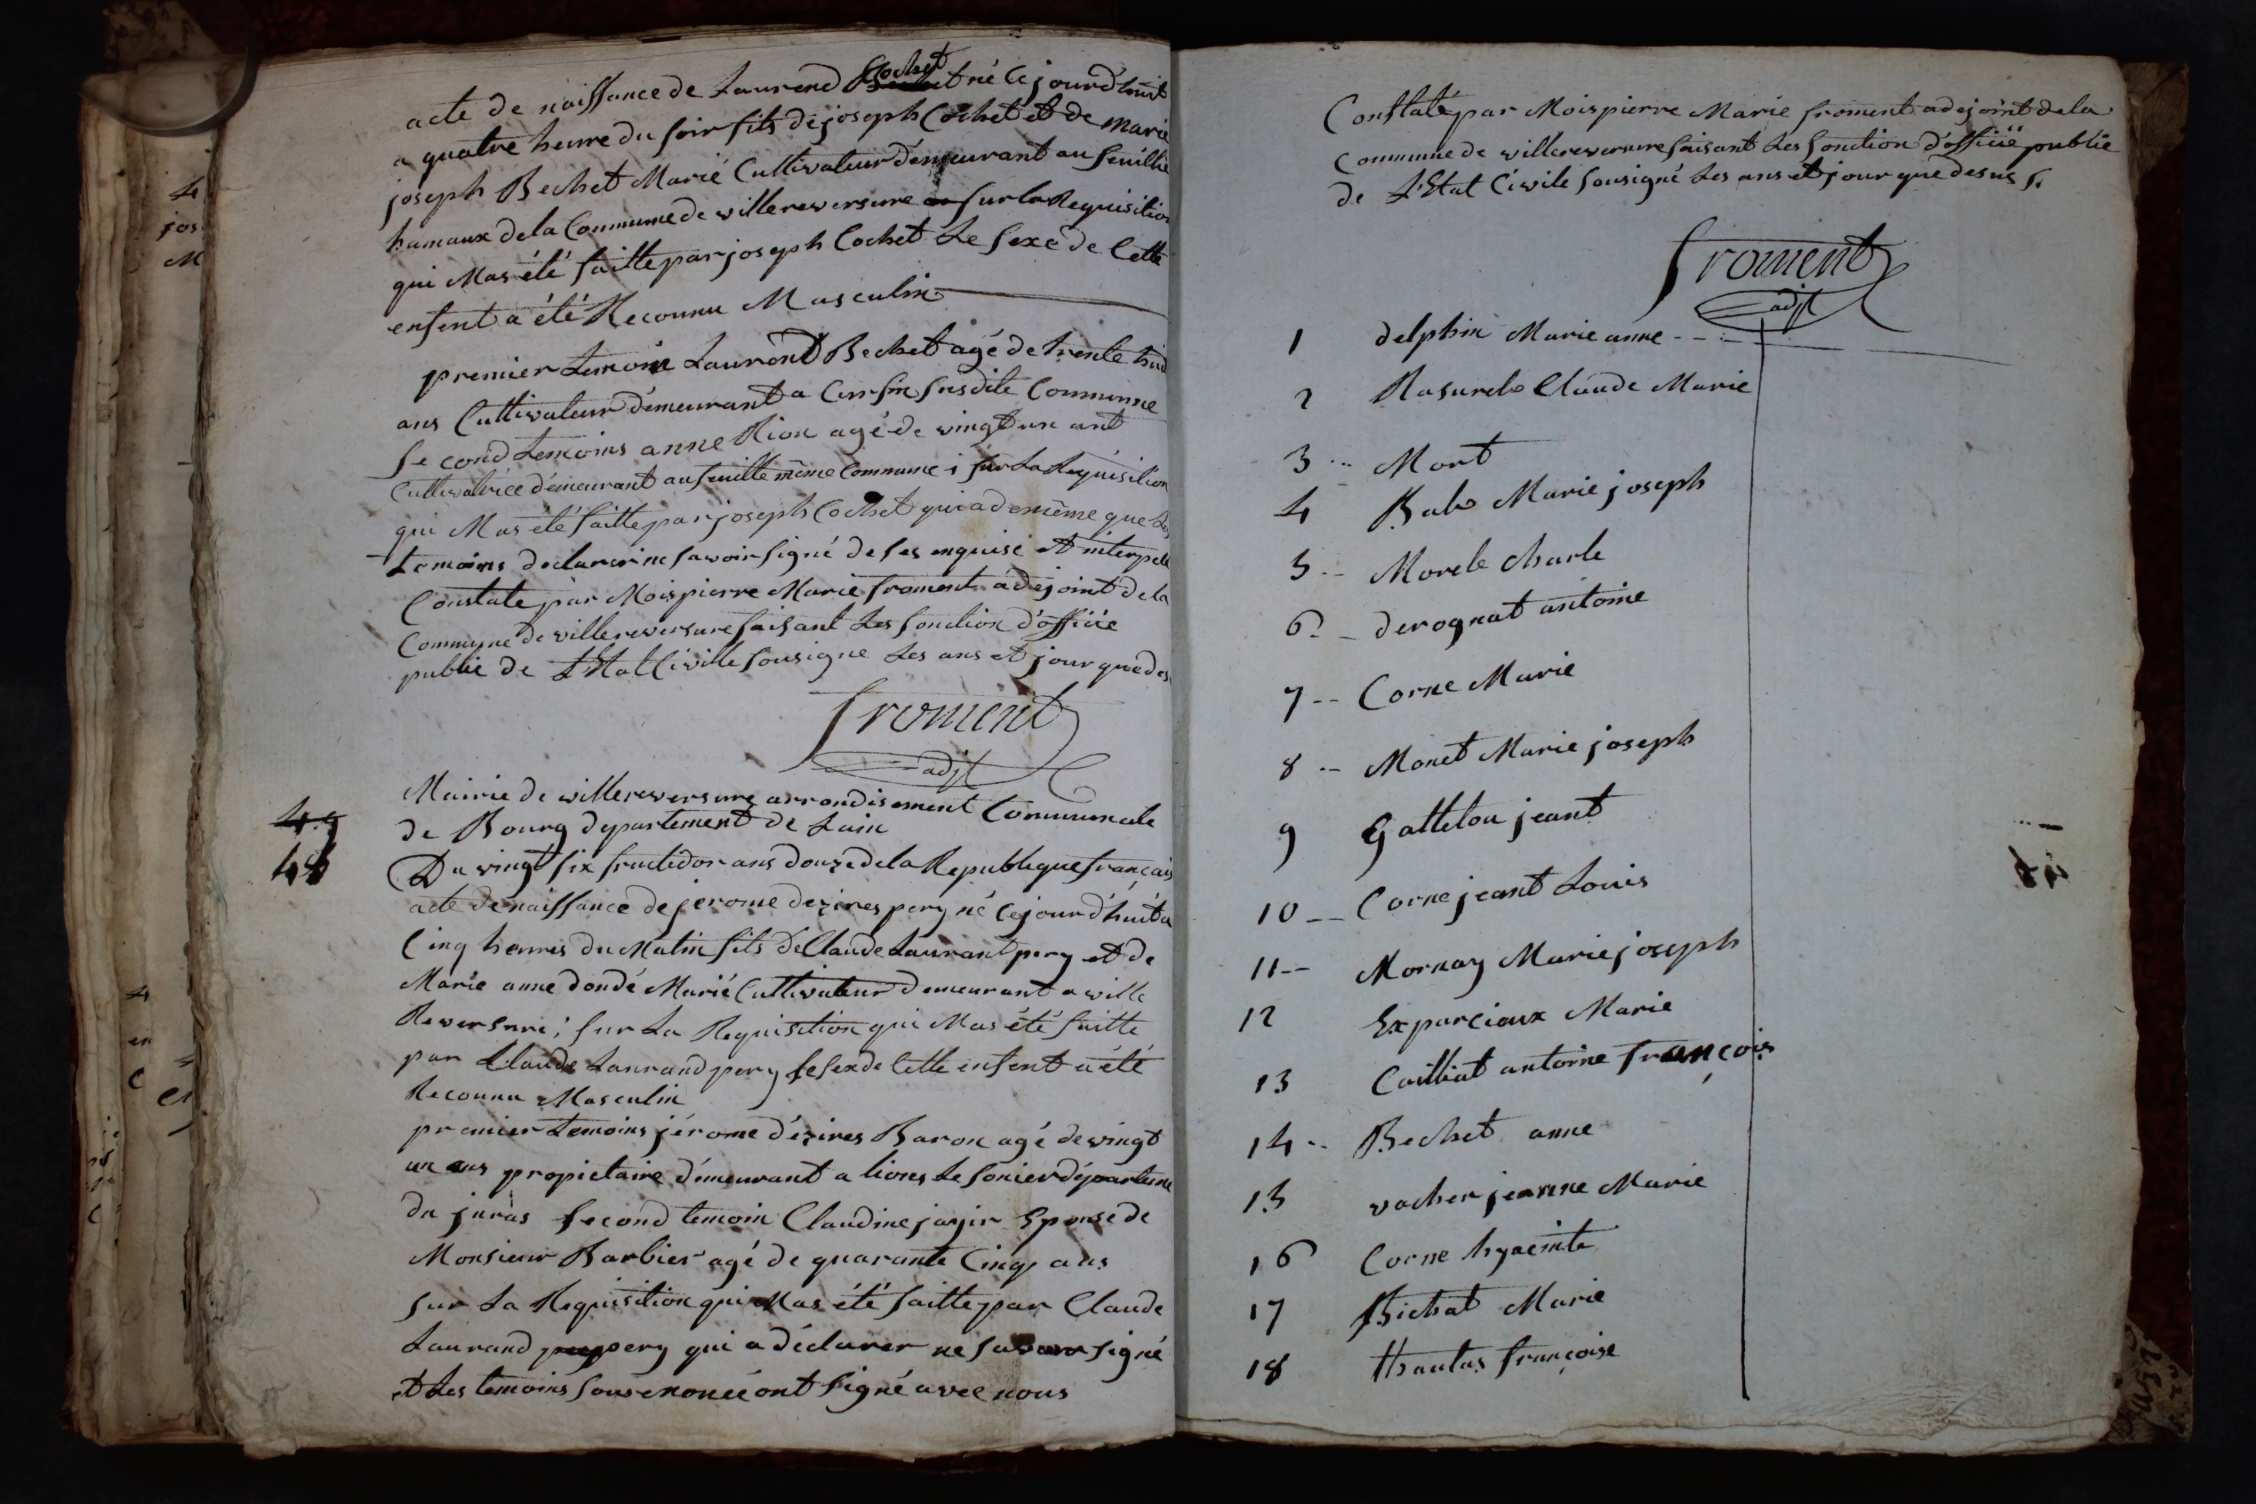 acte de naissance de Laurend Cochet né ce jourd'huit
a quatre heure du soir fils de joseph Cochet et de marie
joseph Bechet Marié Cultivateur demeurant au feuillie
hamaux de la Commume de villereversure sur la Requisition
qui Mas été faitte par joseph Cochet Le sexe de Cette
enfent a été Reconnu Masculin
premier temoin Laurent Bechet agé de trente huit
ans Cultivateur demeurant a Cursin susdite Commune
second temoins anne Rion agé de vingt un ant
Cultivatrice demeurant au feuille même Commune i sur La Requisition
qui Mas été faitte par joseph Cochet qui a de même que Les
temoins declarer ne savoir signé de ses enquise et interpelé
Constate par Mois pierre Marie froment adejoint de la
Commune de villereversure faisant Les fonction d'officie
public de L'Etat Civille sousigne Les ans et jour que des
froment
adjt
49
48
Mairie de villereversure arrondisement Communale
de Bourg departement de Lain
Du vingt six fructidor ans douze de la Republique français
acte de naissance de jerome dezires pery né ce jour d'huit a
Cinq heures du Matin fils de Claude Laurant pery et de
Marie anne dondé Marié Cultivateur demeurant a ville
Reversure ; sur La Requisition qui Mas été faitte
par Claude Laurand pery le sexe de Cette enfent a été
Reconnu Masculin
premier temoins jérome dézires Baron agé de vingt
un ans propietaire démeurant a lions Le sonier départeme
du juras second temoin Claudine jayir Epouse de
Monsieur Barbier agé de quarante Cinq ans
sur La Requisition qui Mas été faitte par Claude
Laurand pery qui a déclarer ne savoir signé
et Les temoins sousenoncé ont signé avec nous
Constaté par Mois pierre Marie froment adejoint de la
Commune de villereversure faisant Les fonction d'officié public
de L'Etat Civile sousigné Les ans et jour que desus
froment
adjt
1 delphin Marie anne
2 Rasurel Claude Marie
3 Mort
4 Bab Marie joseph
5 Morele Charle
6 derognat antoine
7 Corne Marie
8 Monet Marie joseph
9 Gattelou jeant
10 Corne jeant Louis
11 Mornay Marie joseph
12 Exparcioux Marie
13 Cailliat antoine françois
14 Bechet anne
15 vacher jeanne Marie
16 Corne hyacinte
17 Bichat Marie
18 thautas françoise